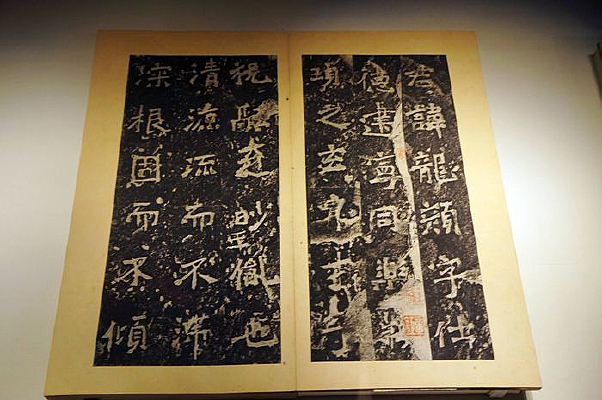 君諱龍顏字仕
德建寧同樂縣
頊之玄
祝融之眇胤也
清源流而不滯
深根固而不傾